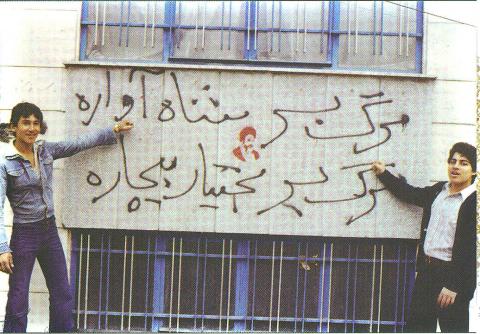 مرگ بر شاه آواره
مرگ بر بختیار بیچاره